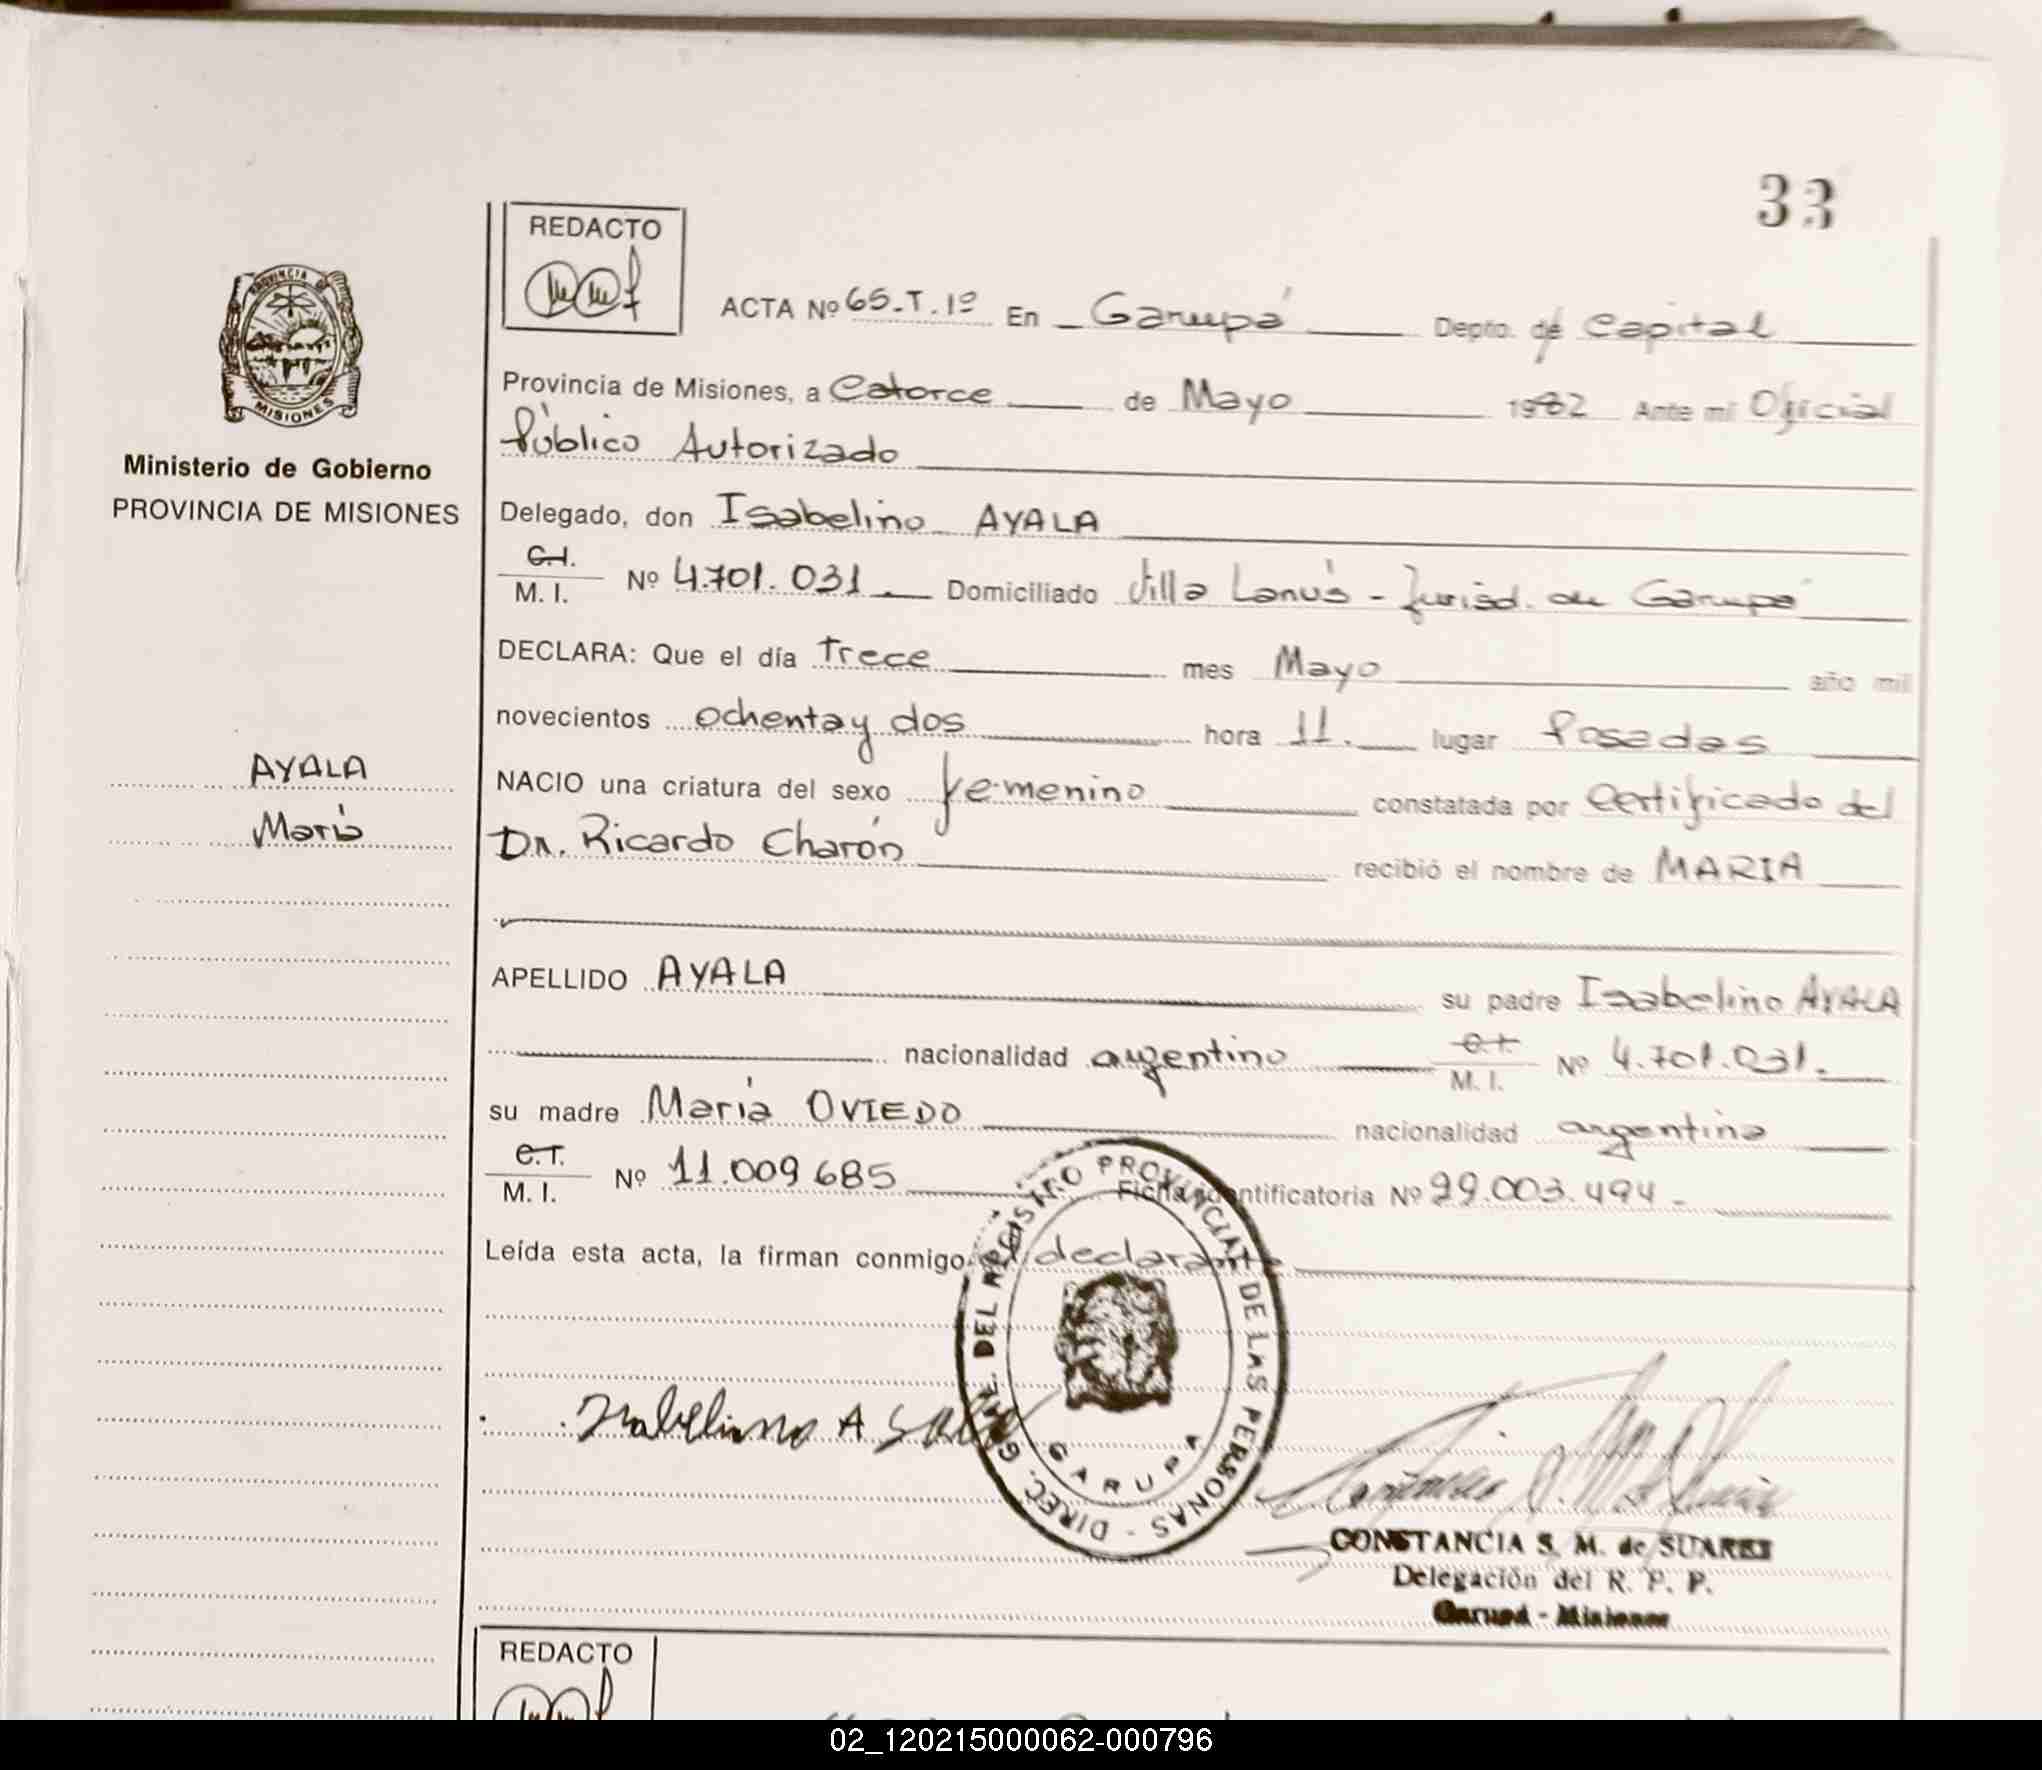 33
REDACTO
ACTA Nº 65-T.1º En Garupá Depto. de Capital
PROVINCIA DE
MISIONES
Provincia de Misiones, a Catorce de Mayo 1982 Ante mi Oficial
Público Autorizado
Ministerio de Gobierno
PROVINCIA DE MISIONES
Delegado, don Isabelino AYALA
C.I.
M. I. Nº 4.701.031 Domiciliado Villa Lanús - Jurisd. de Garupá
DECLARA: Que el día trece mes Mayo año mil
novecientos ochenta y dos hora 11. lugar Posadas
AYALA
María
NACIO una criatura del sexo femenino constatada por Certificado del
Dr. Ricardo Charón recibió el nombre de MARIA
APELLIDO AYALA su padre Isabelino AYALA
nacionalidad argentino C.I. M. I. Nº 4.701.031.
su madre María OVIEDO nacionalidad argentina
C.I.
M. I. Nº 11.009.685 Ficha identificatoria Nº 29.003.494-
Leída esta acta, la firman conmigo el declarante
DIREC. GRAL. DEL REGISTRO PROVINCIAL DE LAS PERSONAS -
GARUPA
Isabelino Ayala
CONSTANCIA S. M. de SUAREZ
Delegación del R. P. P.
Garupá - Misiones
REDACTO
02_120215000062-000796